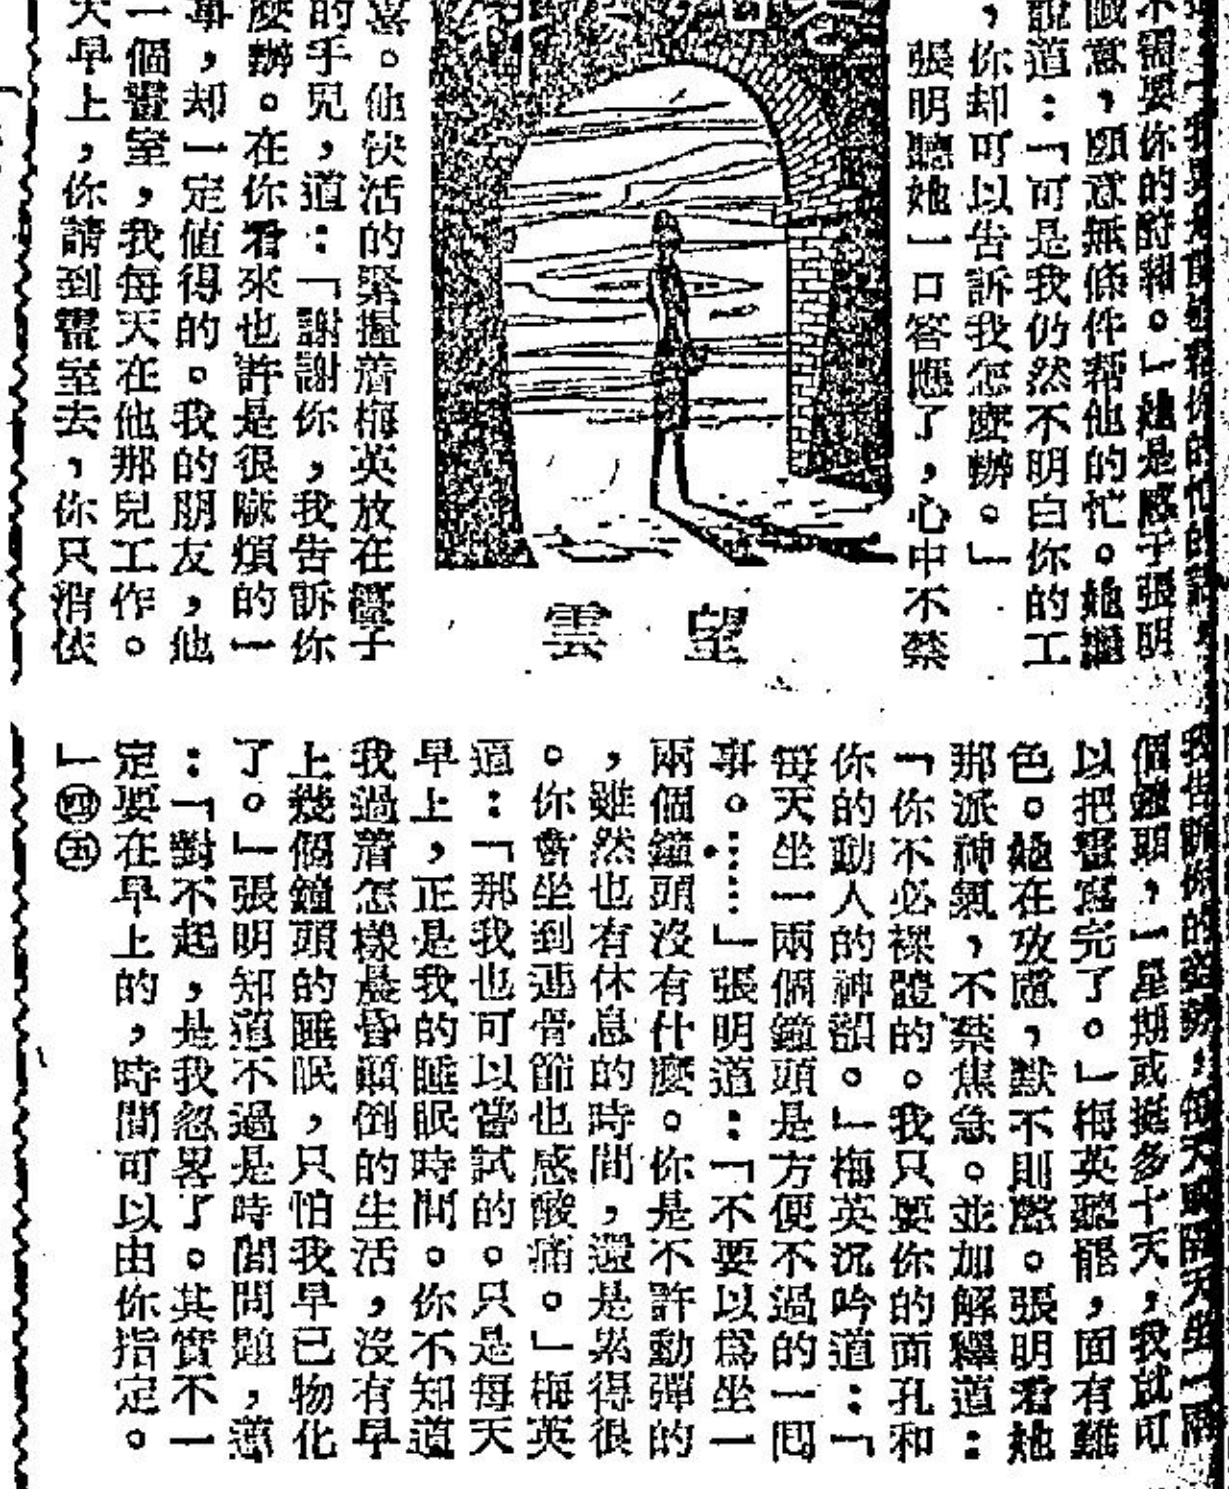 不需要你的酬報。」她是感于張明
誠意,願意無條件帮他的忙。她繼
說道:「可是我仍然不明白你的工
,你却可以告訴我怎麽辦。」
張明聽她一口答應了,心中不禁
望雲
喜。他快活的緊握着梅英放在檯子
的手兒,道:「謝謝你,我告訴你
麽辦。在你看來也許是很厭煩的一
事,却一定値得的。我的朋友,他
一個畫室,我每天在他那兒工作。
天早上,你請到畫室去,你只消依
我告訴你的姿勢,每天或隔天坐一兩
個鐘頭,一星期或挺多十天,我就可
以把畫寫完了。」梅英聽罷,面有難
色。她在攷慮,默不則聲。張明看她
那派神氣,不禁焦急。並加解釋道:
「你不必裸體的。我只要你的面孔和
你的動人的神韻。」梅英沉吟道:「
每天坐一兩個鐘頭是方便不過的一囘
事。……」張明道:「不要以爲坐一
兩個鐘頭沒有什麽。你是不許動彈的
,雖然也有休息的時間,還是累得很
。你會坐到連骨節也感酸痛。」梅英
道:「那我也可以嘗試的。只是每天
早上,正是我的睡眠時間。你不知道
我過着怎樣晨昏顚倒的生活,沒有早
上幾個鐘頭的睡眠,只怕我早已物化
了。」張明知道不過是時間問題,遂
:「對不起,是我忽畧了。其實不一
定要在早上的,時間可以由你指定。
」㊃㊄